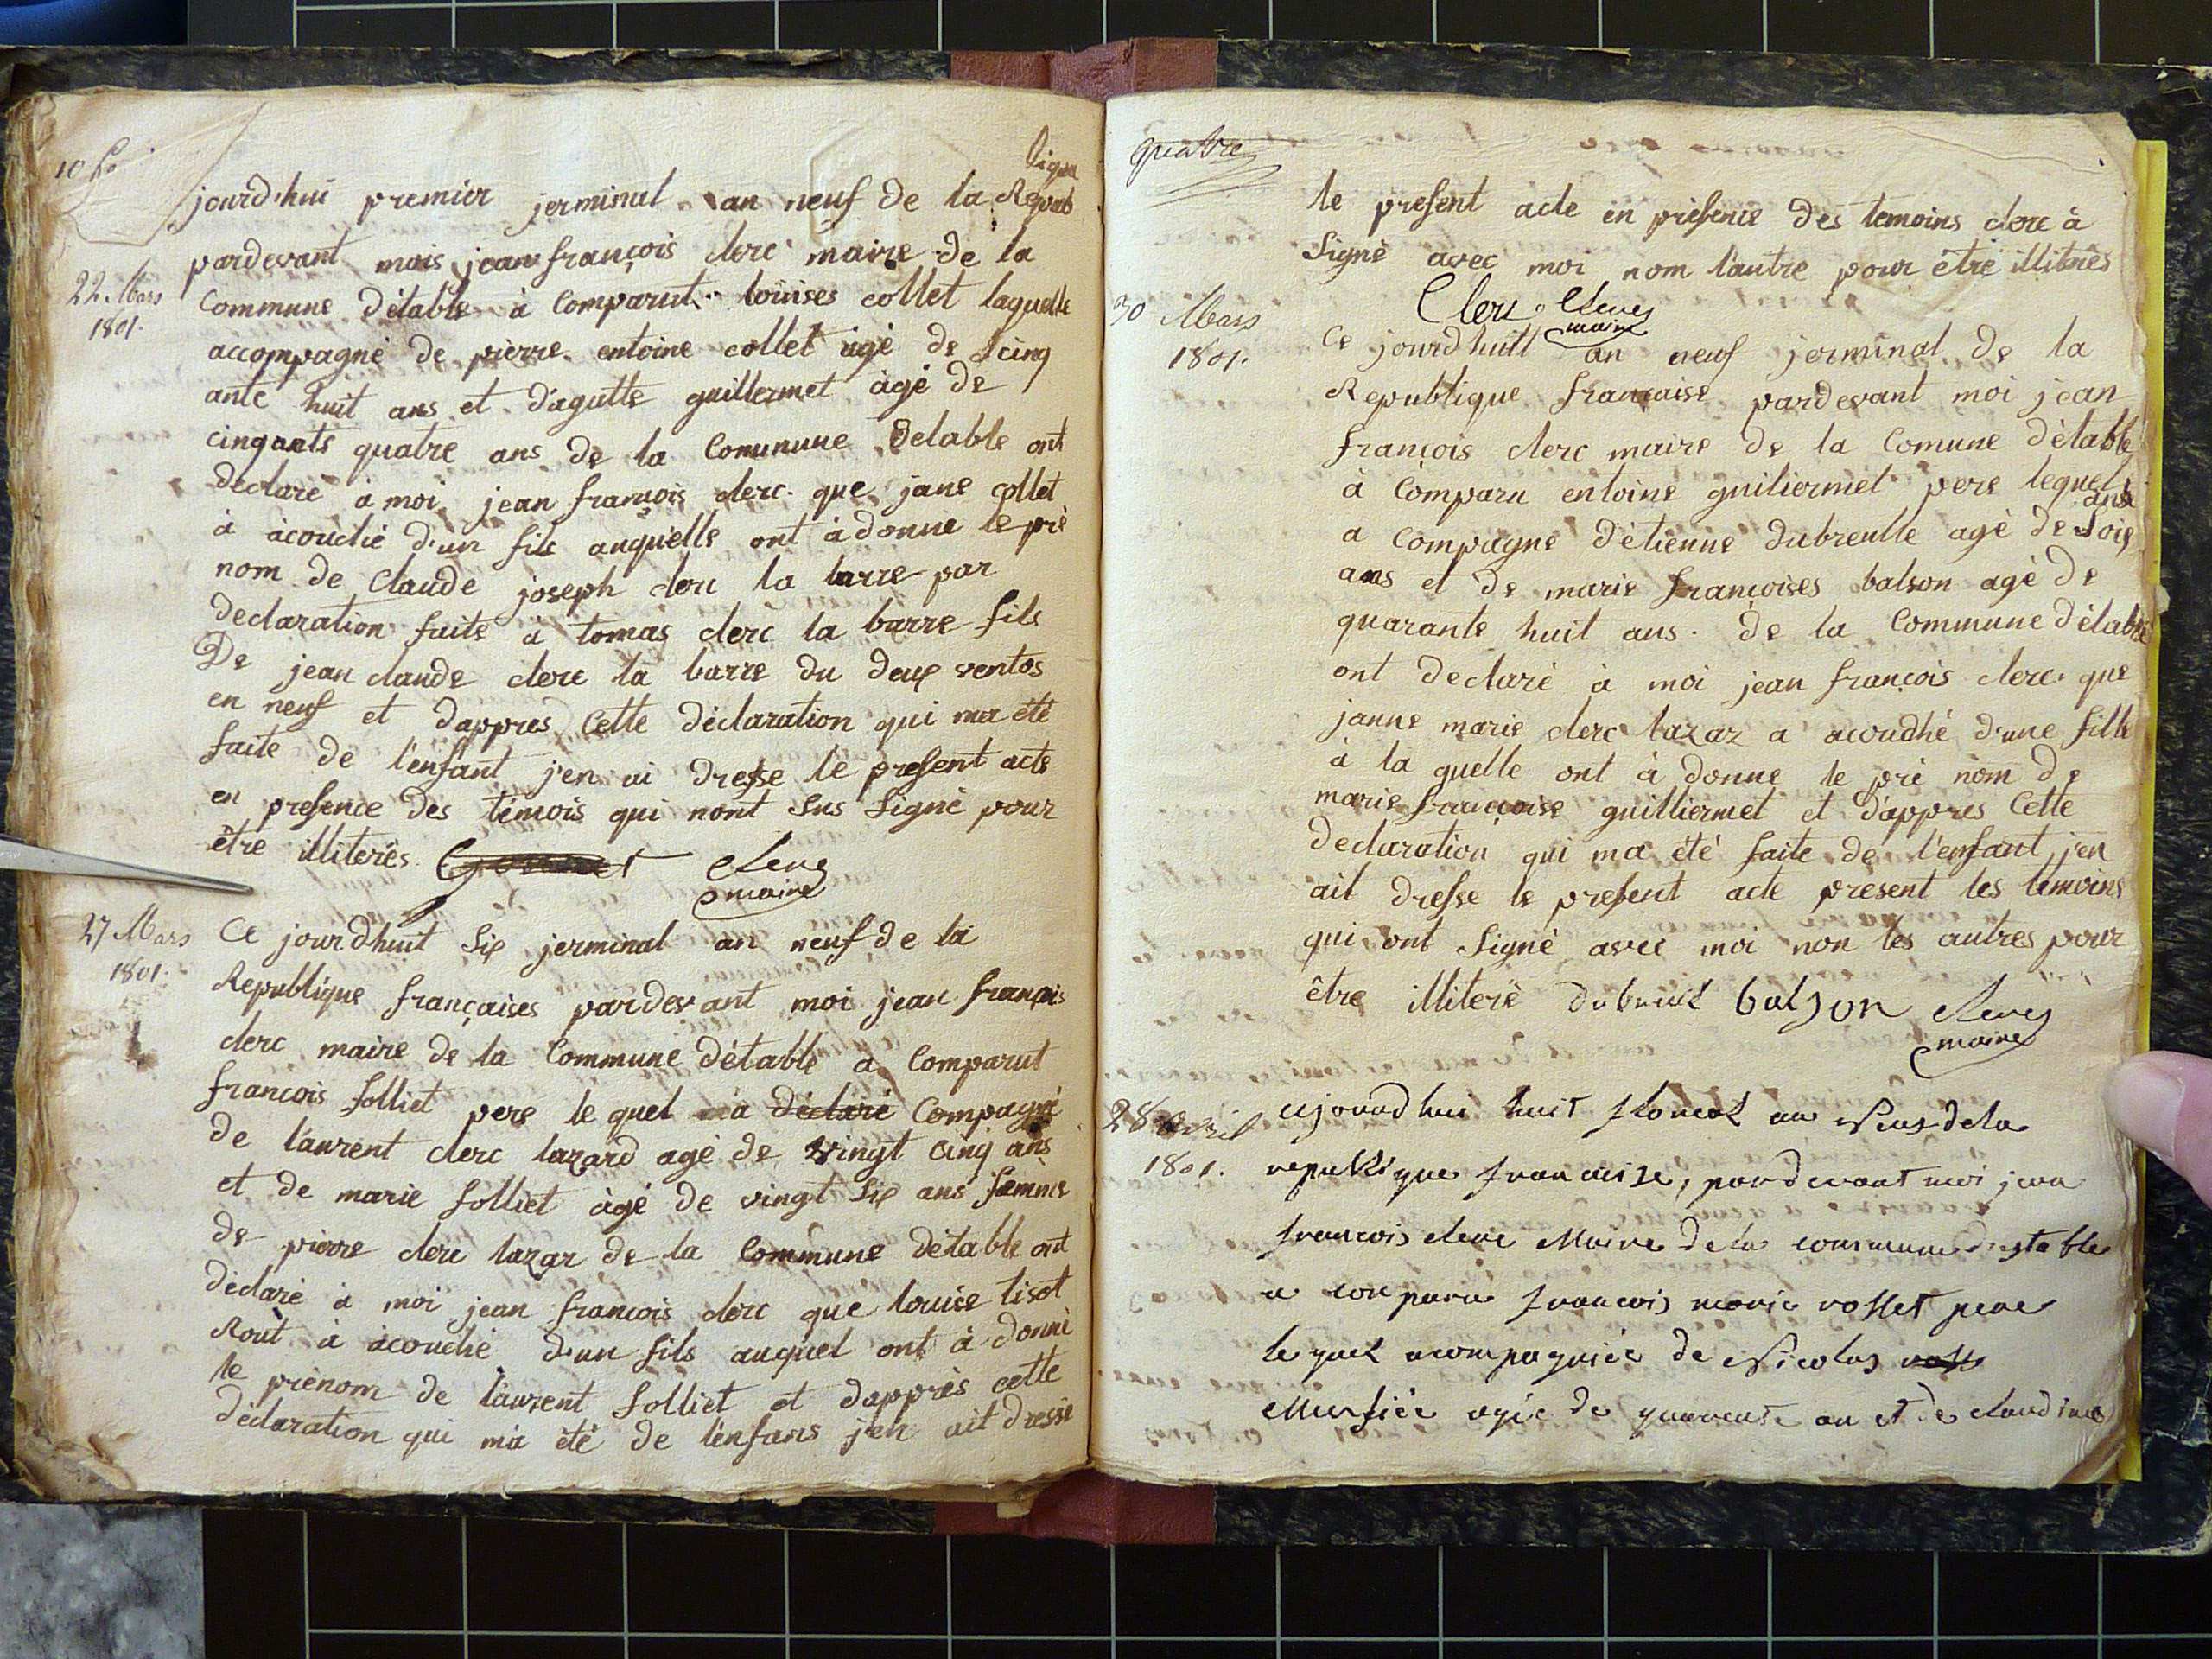 lique
jourd'hui premier jerminal an neuf de la Repub
22 Mars
1801.
pardevant mois jean françois clerc maire de la
Commune d'étable à Comparut louises collet laquelle
accompagné de pierre entoine collet agé de Scinq
ante huit ans et d'agutte guillermet àgé de
cinqants quatre ans de la Comunune detable ont
declaré à moi jean françois clerc que jane collet
à àcouché d'un fils auqu'elle ont à donné le pré
nom de Claude joseph clerc la barre par
declaration faite à tomas clerc la barre fils
De jean claude clerc la barre du deux ventos
en neuf et dappres Cette déclaration qui ma été
faite de l'enfant j'en ai dresse le present acte
en presence des témois qui nont sus Signé pour
être illiterés Clerc
maire
27 Mars
1801.
Ce jourdhuit Six jerminal an neuf de la
Republique françaises pardevant moi jean françois
clerc maire de la Commune détable a Comparut
françois folliet pere le quel a déclaré Compagné
de laurent clerc lazard agé de vingt cinq ans
et de marie folliet àgé de vingt Six ans famme
de pierre clerc lazar de la Commune détable ont
déclaré à moi jean françois clerc que louise tisot
Rout à àcouché d'un fils auquel ont à donné
le prénom de laurent folliet et dapprès cette
déclaration qui m'a été de l'enfans j'en ait dressé
quatre
le present acte en présence des temoins clerc à
Signé avec moi nom l'autre pour être illiterés
Clerc Clerc
maire
30 Mars
1801.
Ce jourdhuit an neuf jerminal de la
Republique francaise pardevant moi jean
françois clerc maire de la Comune détable
à Comparu entoine guiliermet pere lequel
a Compagné d'étienne dubreulle agé de Sois
ans
ans et de marie françoises balson agé de
quarante huit ans. de la Commune détable
ont declaré à moi jean françois clerc que
janne marie clerc lazaz a acoudhé d'une fille
à la quelle ont à donne le pré nom de
marie françoise guilliermet et d'appres Cette
declaration qui ma été faite de l'enfant j'en
ait dresse le present acte present les témoins
qui ont Signé avec moi non les autres pour
être illiteré dubruit balson Clerc
maire
28 avril
1801.
aujourdhui huit floreal an neuf de la
republique francaise, pardevant moi jean
francois clerc Maire de la commune destable
a comparu francois marie rosset pere
le quel acompagniée de Nicolas
Mersiée agée de quarente an et de claudine